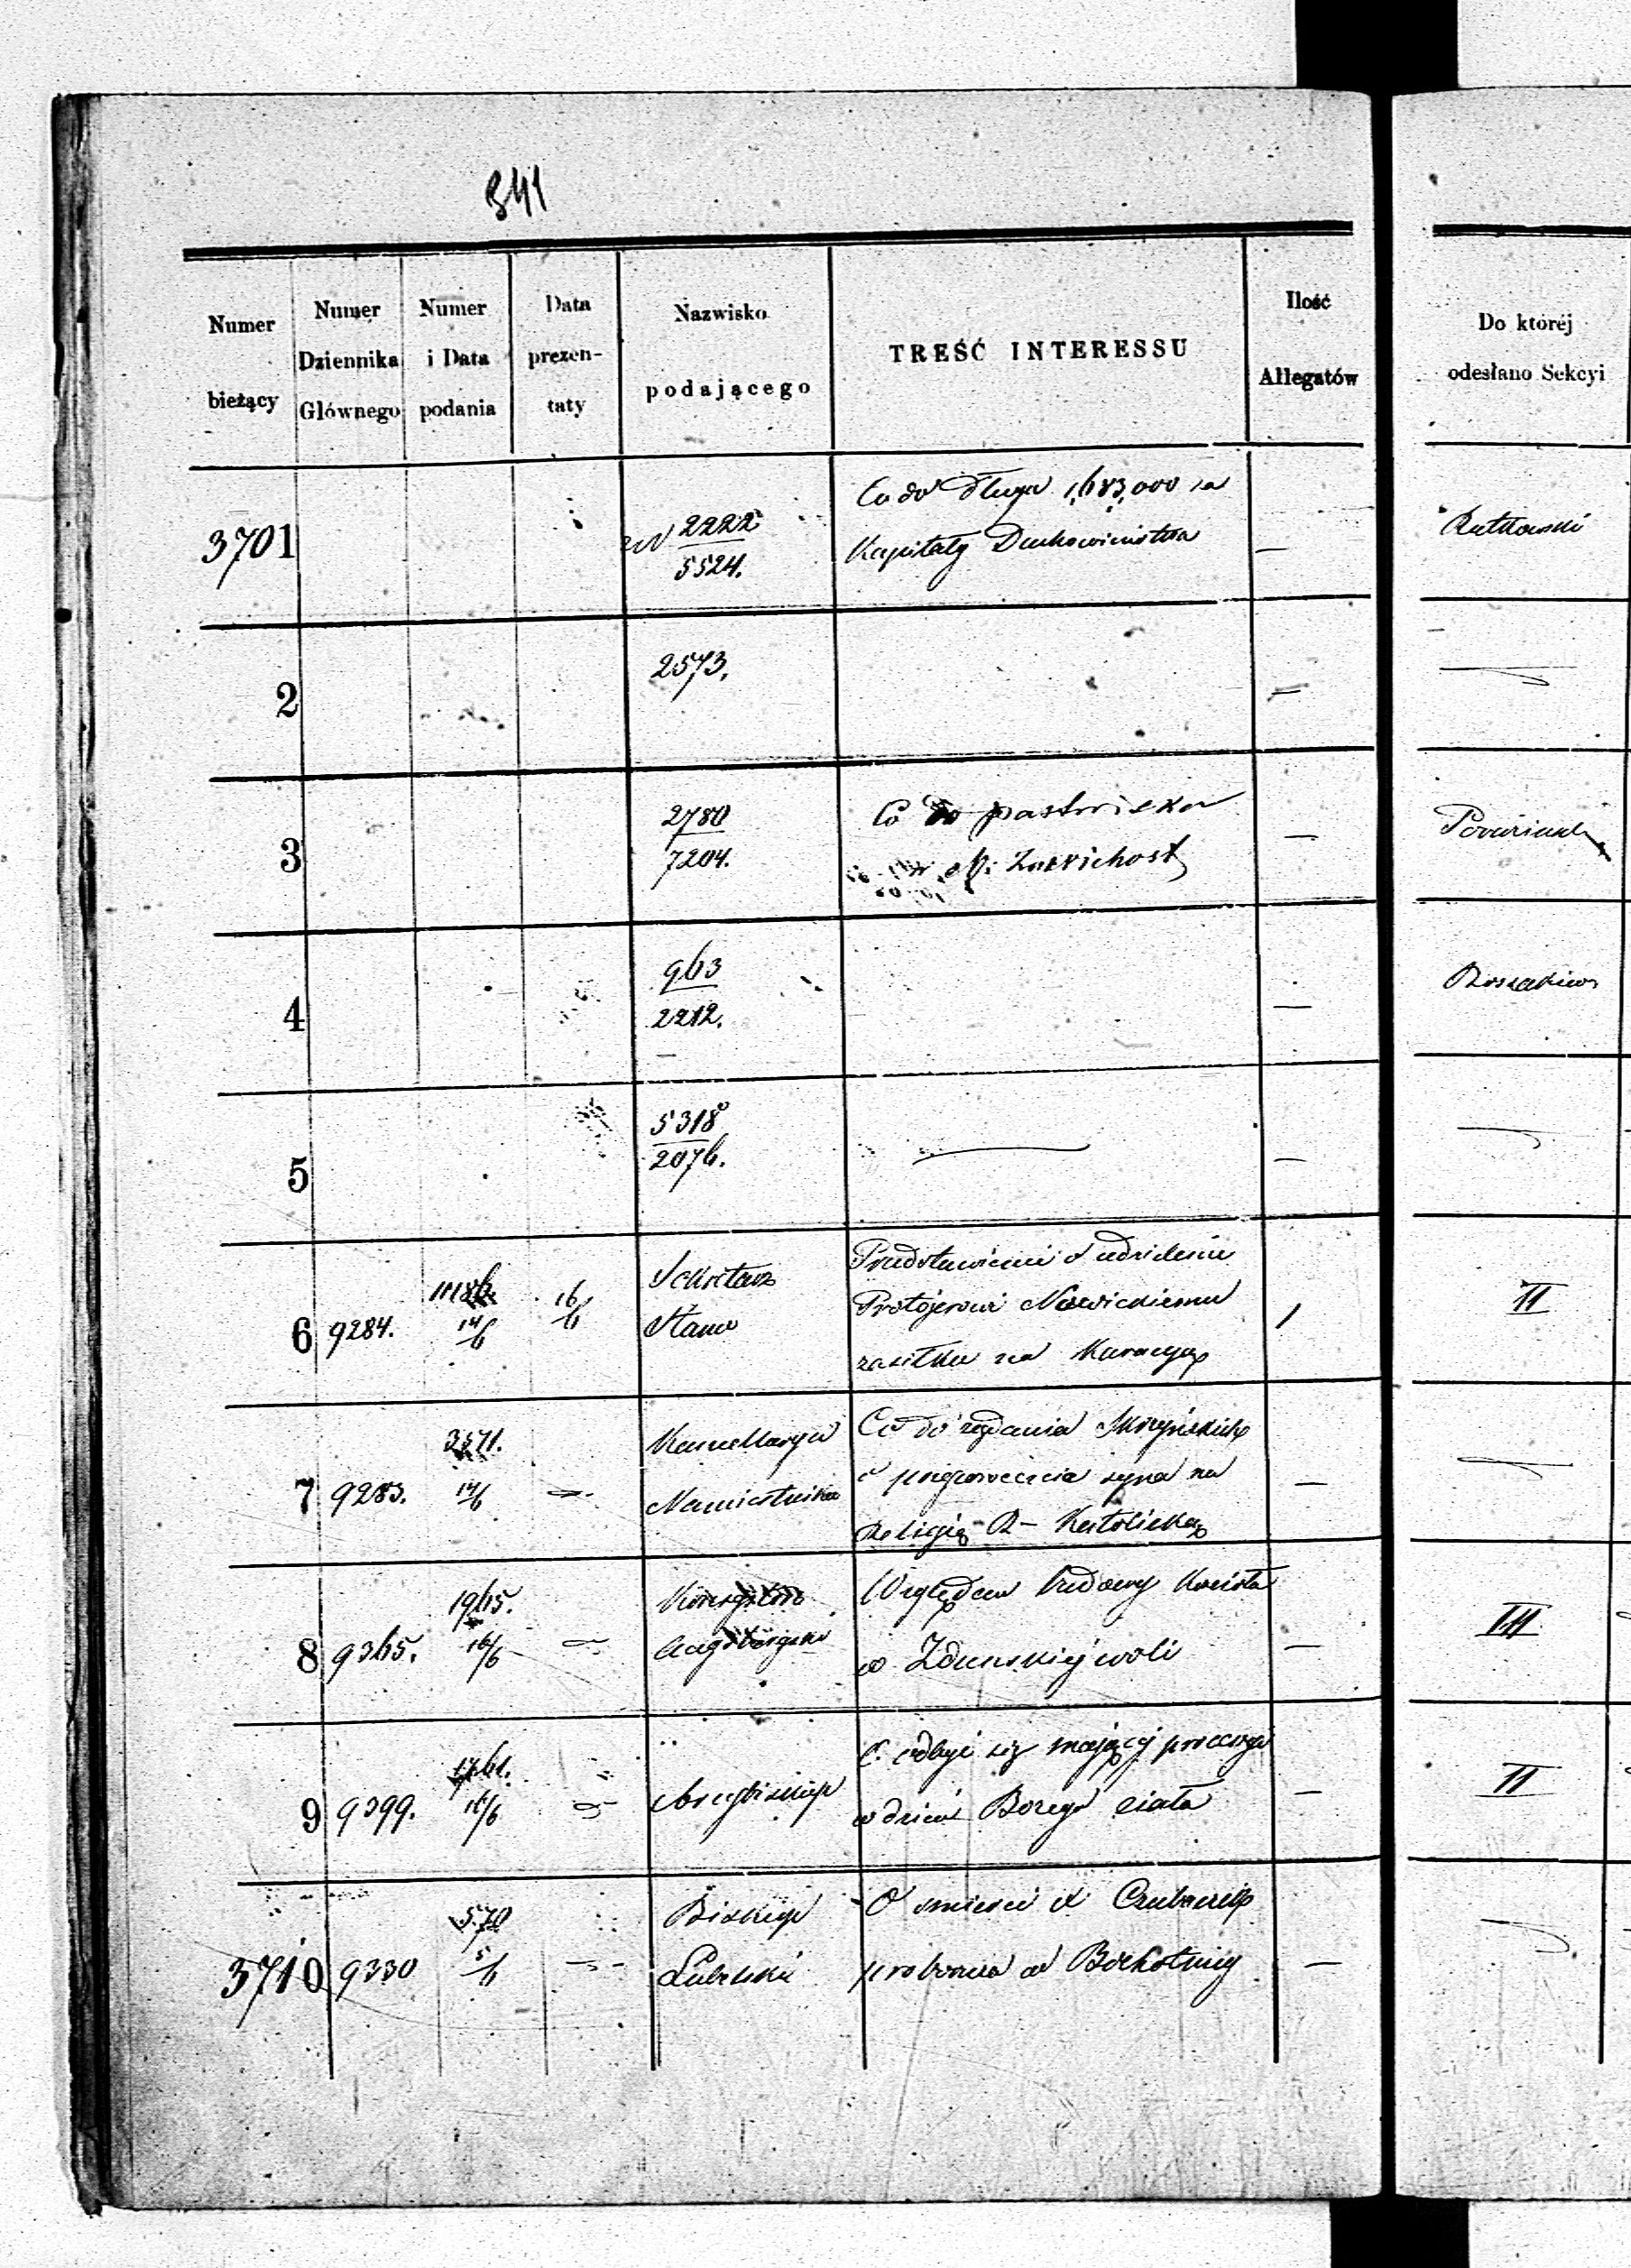 341
Numer bieżący
Numer Dziennika Głównego
Numer i Data podania
Data prezentaty
Nazwisko podającego
TREŚĆ INTERESSU
Ilość Allegatów
Do któréj odesłano Sekcyi
3701
2222
5524.
Co do długu 1,683,000 za
Kapitały Duchowieństwa
—
Rutkowski
2
2573.
—
3
2780
7204.
Co do pastwiska
M: Zawichost
—
4
963
2212.
—
5
5318
2076.
—
6
9284.
11186.
14/6
16/6
Sekretarz
Stanu
Przedstawienie o udzielenie
Protojerowi Nowickiemu
zasiłku na Kuracyą
1
II
7
9283.
3571.
14/6
Kancellarya
Namiestnika
Co do żądania Skrzyńskich
Religią R- Katolicką
—
8
9365.
1965.
16/6
Konsystorz
Augsburgski
Względem budowy Kościoła
w Zduńskiéj woli
—
III
9
9399.
1761.
16/6
Arcybiskup
O odbyć się mającéj processyi
w dzień Bożego ciała
—
II
3710
9330
570
5/6
Biskup
Lubelski
O śmierci X
proboszcza w
—